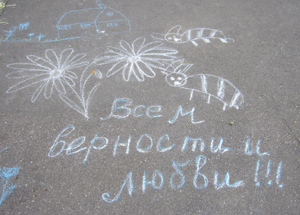 Всем
верности и
любви!!!